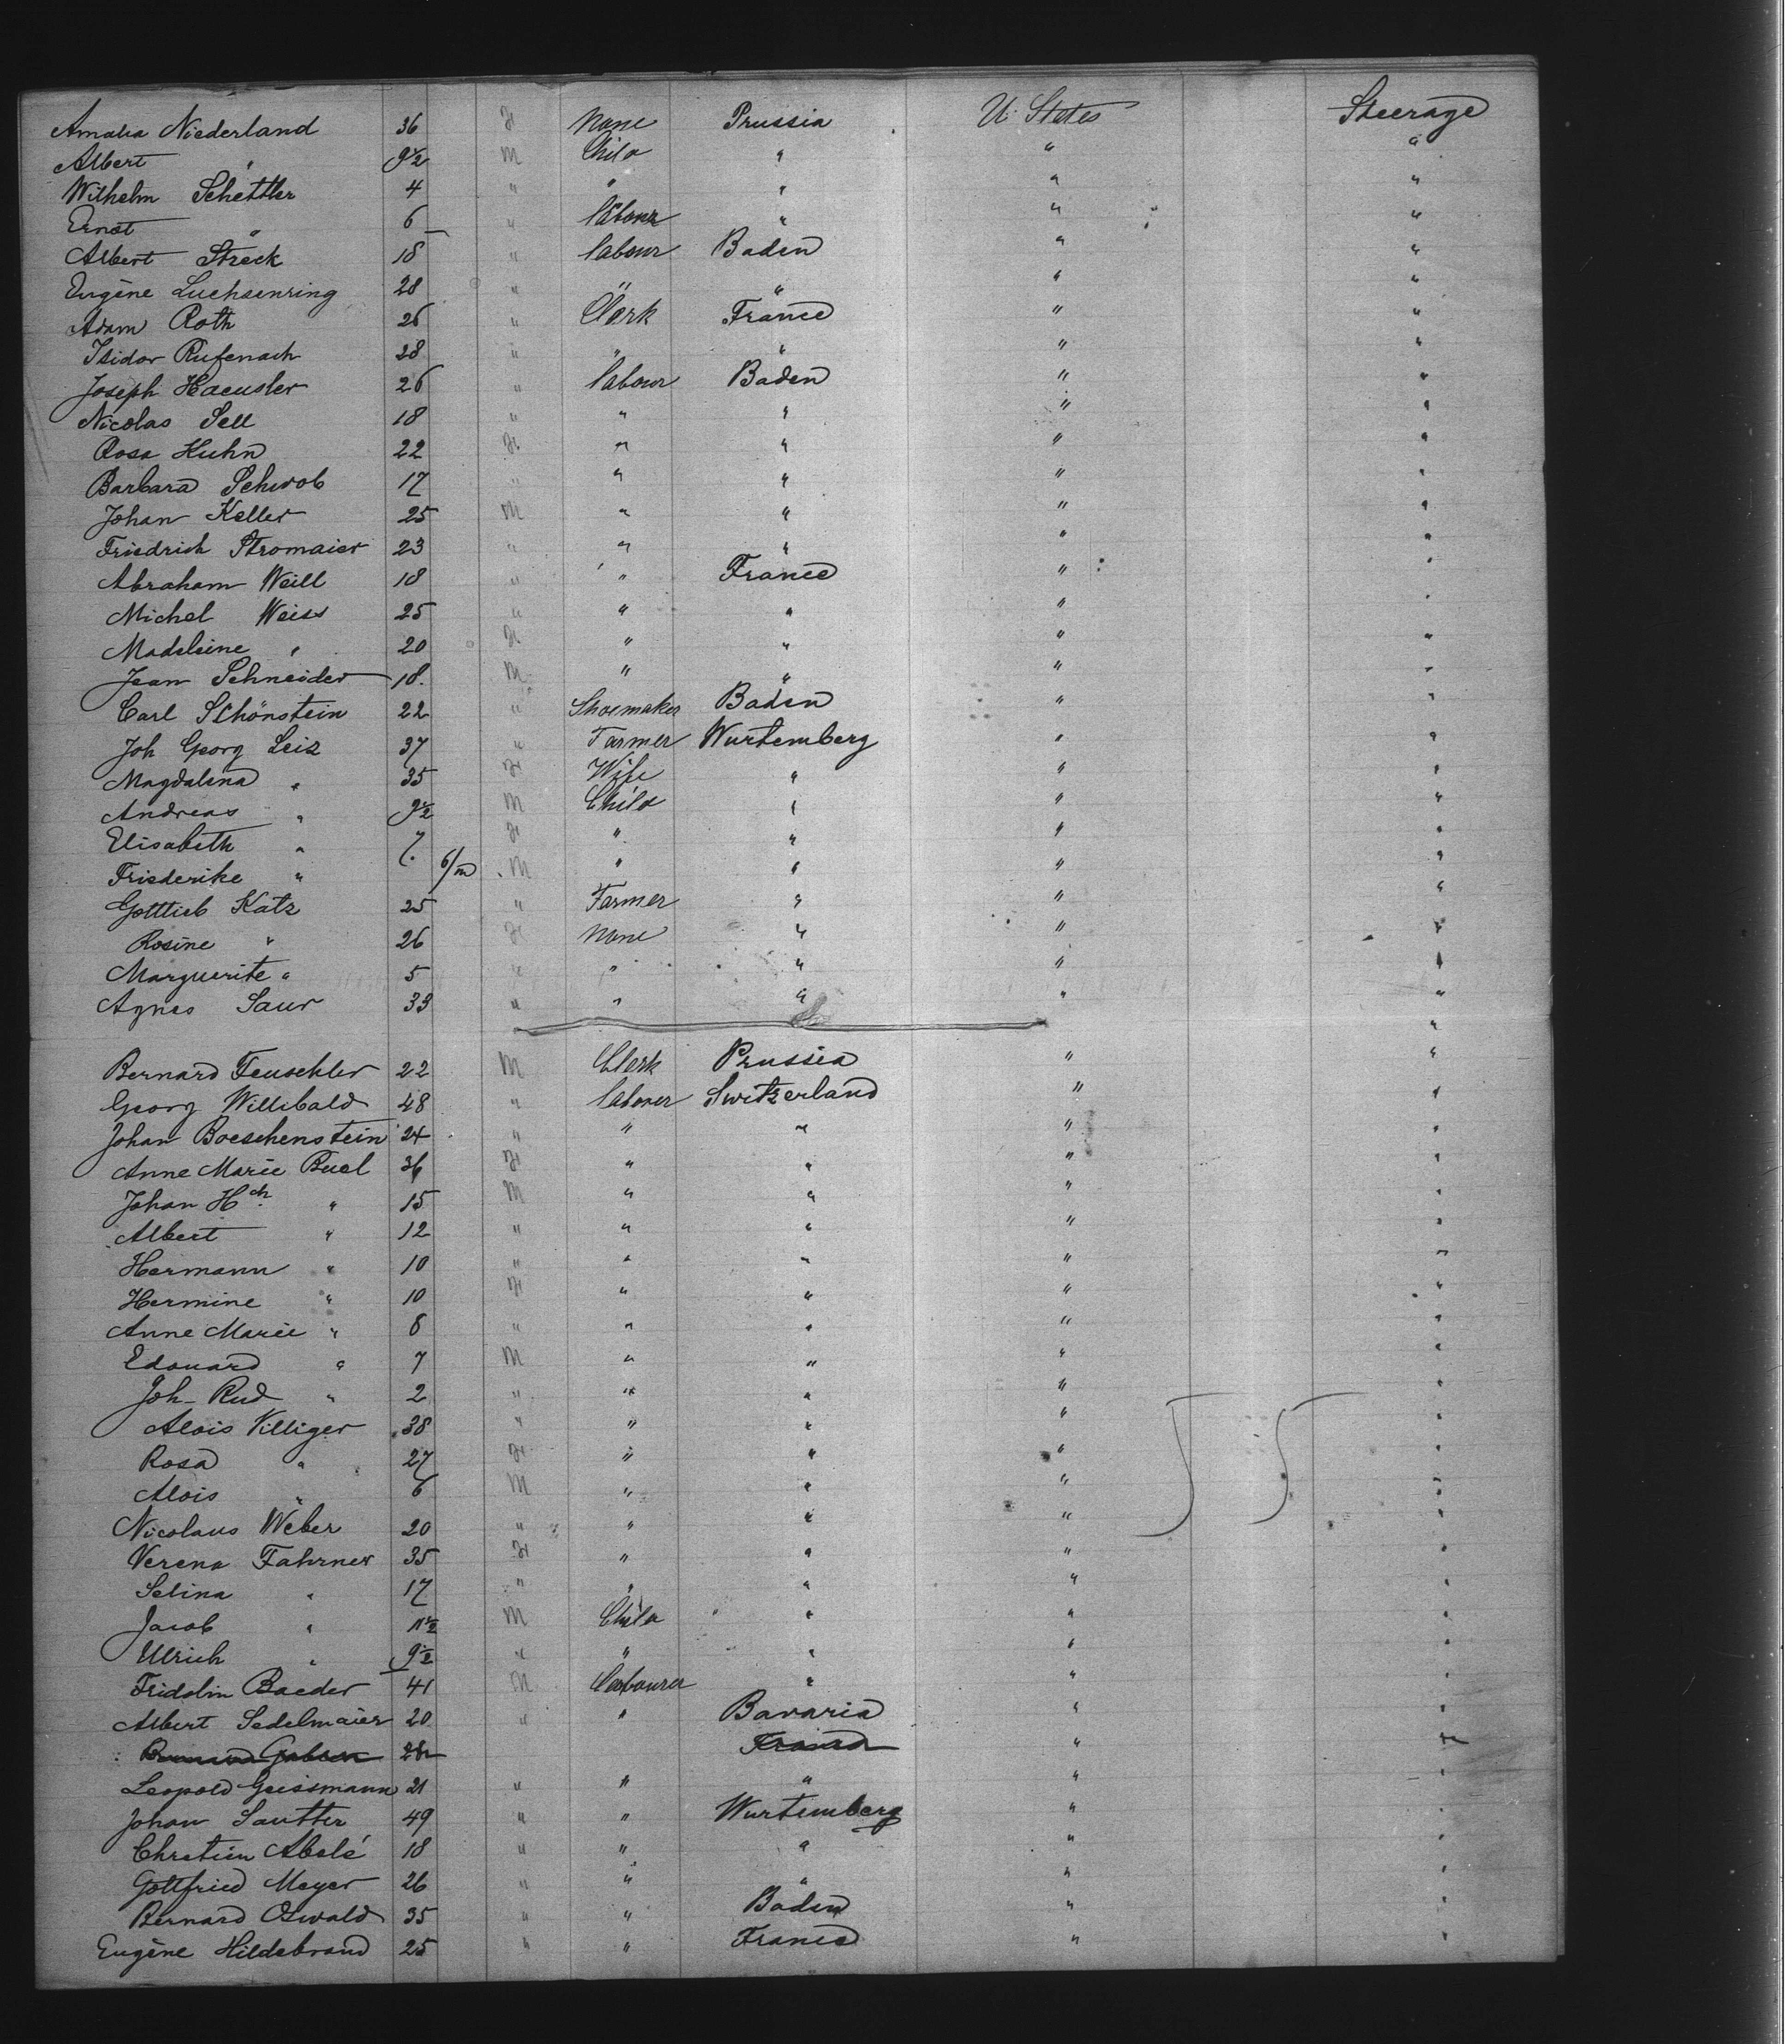 Amalia Niederland 36 F None Prussia U. States Steerage
Albert " 9½ M Child " " "
Wilhelm Schettler 4 " " " " "
Ernst " 6 " labour " " "
Albert Streck 18 " labour Baden " "
Eugène Luchsenring 28 " " " " "
Adam Roth 26 " Clerk France " "
Isidor Rufenach 28 " " " " "
Joseph Haeusler 26 " labour Baden " "
Nicolas Sell 18 " " " " "
Rosa Huhn 22 F " " " "
Barbara Schwob 17 " " " " "
Johan Keller 25 M " " " "
Friedrich Stromaier 23 " " " " "
Abraham Weill 18 " " France " "
Michel Weiss 25 " " " " "
Madeleine " 20 F " " " "
Jean Schneider 18. M " " " "
Carl Schönstein 22 " Shoemaker Baden " "
Joh Georg Leiz 37 " Farmer Wurtemberg " "
Magdalena " 35 F Wife " " "
Andreas " 9½ M Child " " "
Elisabeth " 7. F " " " "
Friederike " 6/m M " " " "
Gottlieb Katz 25 " Farmer " " "
Rosine " 26 F None " " "
Marguerite " 5 " " " " "
Agnes Saur 33 " " " " "
"
Bernard Feuschler 22 M Clerk Prussia " "
Georg Willibald 48 " labourer Switzerland " "
Johan Boeschenstein 24 " " " " "
Anne Marie Buel 36 F " " " "
Johan Hch. " 15 M " " " "
Albert " 12 " " " " "
Hermann " 10 " " " " "
Hermine " 10 F " " " "
Anne Marie " 8 " " " " "
Edouard " 7 M " " " "
Joh- Rud " 2 " " " " "
Alois Villiger 38 " " " " "
Rosa " 27 F " " " "
Alois " 6 M " " " "
Nicolaus Weber 20 " " " " "
Verena Fahrner 35 F " " " "
Selina " 17 " " " " "
Jacob " 11½ M Child " " "
Ulrich " 9½ " " " " "
Fridolin Baeder 41 M Labourer " " "
Albert Sedelmaier 20 " " Bavaria " "
28 France " "
Leopold Geissmann 21 " " " " "
Johan Sautter 49 " " Wurtemberg " "
Chretien Abelé 18 " " " " "
Gottfried Meyer 26 " " " " "
Bernard Oswald 35 " " Baden " "
Eugène Hildebrand 25 " " France " "